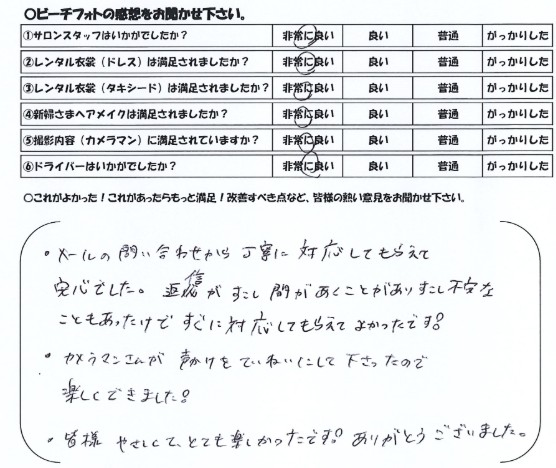 ○ビーチフォトの感想をお聞かせ下さい。
①サロンスタッフはいかがでしたか？ 非常に良い 良い 普通 がっかりした
②レンタル衣裳（ドレス）は満足されましたか？ 非常に良い 良い 普通 がっかりした
③レンタル衣裳（タキシード）は満足されましたか？ 非常に良い 良い 普通 がっかりした
④新婦さまヘアメイクは満足されましたか？ 非常に良い 良い 普通 がっかりした
⑤撮影内容（カメラマン）に満足されていますか？ 非常に良い 良い 普通 がっかりした
⑥ドライバーはいかがでしたか？ 非常に良い 良い 普通 がっかりした
○これがよかった！これがあったらもっと満足！改善すべき点など、皆様の熱い意見をお聞かせ下さい。
・メールの問い合わせから丁寧に対応してもらえて
安心でした。返信がすこし間があくことがありすこし不安な
こともあったけどすぐに対応してもらえてよかったです！
・カメラマンさんが声かけをていねいにして下さったので
楽しくできました！
・皆様やさしくて、とても楽しかったです！ありがとうございました。